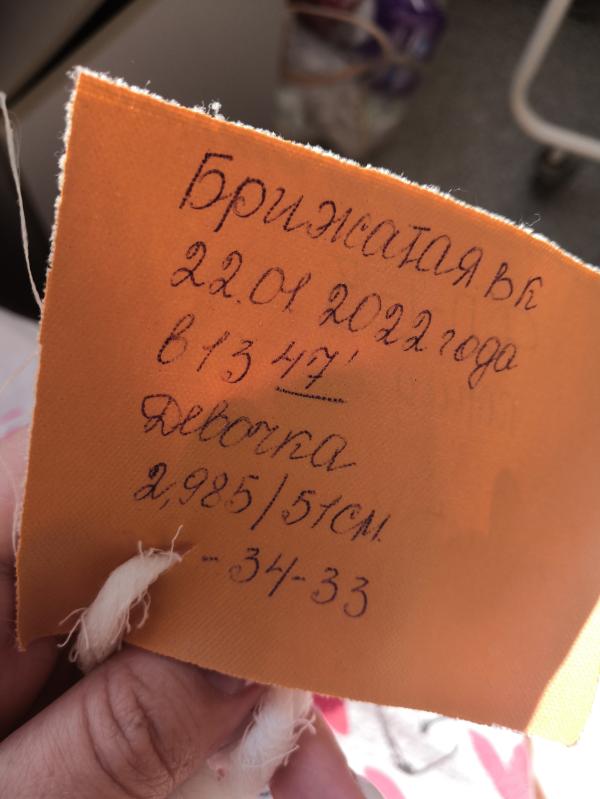 Брижатая вк
22.01 2022 года
в 13 47'
Девочка
2,985/51см.
-34-33